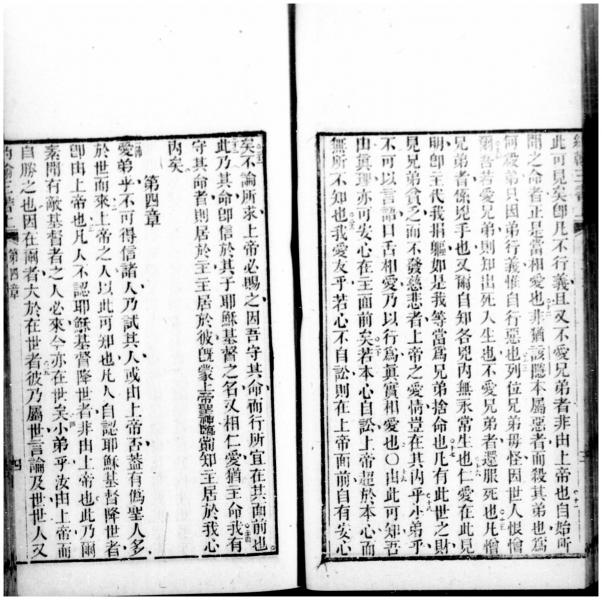 此可見矣卽凡不行義且又不愛兄弟者非由上帝也自始所
聞之命者正是當相愛也非猶該聽本屬惡者而殺其弟也爲
何殺弟只因弟行義惟自行惡也列位兄弟毋怪因世人恨憎
爾吾若愛兄弟則知出死入生也不愛兄弟者還服死也凡憎
兄弟者係兇手也又爾自知各兇內無永常生也仁愛在此見
明卽主代我捐軀如是我等當爲兄弟捨命也凡有此世之財
見兄弟貧乏而不發慈悲者上帝之愛情豈在其內乎小弟乎
不可以言語口舌相愛乃以行爲眞實相愛也〇由此可知吾
由眞理亦可安心在主面前矣若本心自訟上帝超於本心而
無所不知也我愛友乎若心不自訟則在上帝面前自有安心
矣不論所求上帝必賜之因吾守其命而行所宜在其面前也
此乃其命卽信於其子耶穌基督之名又相仁愛猶主命我有
守其命者則居於主主居於彼旣蒙上帝聖神賜前知主居於我心
內矣
第四章
愛弟乎不可得信諸人乃試其人或由上帝否蓋有僞聖人多
於世而來上帝之人以此可知也凡人自認耶穌基督降世者
卽由上帝也凡人不認耶穌基督降世者非由上帝也此乃爾
素聞有敵基督者之人必來今亦在世矣小弟乎汝由上帝而
自勝之也因在爾者大於在世者彼乃屬世言論及世世人又
第四章
四